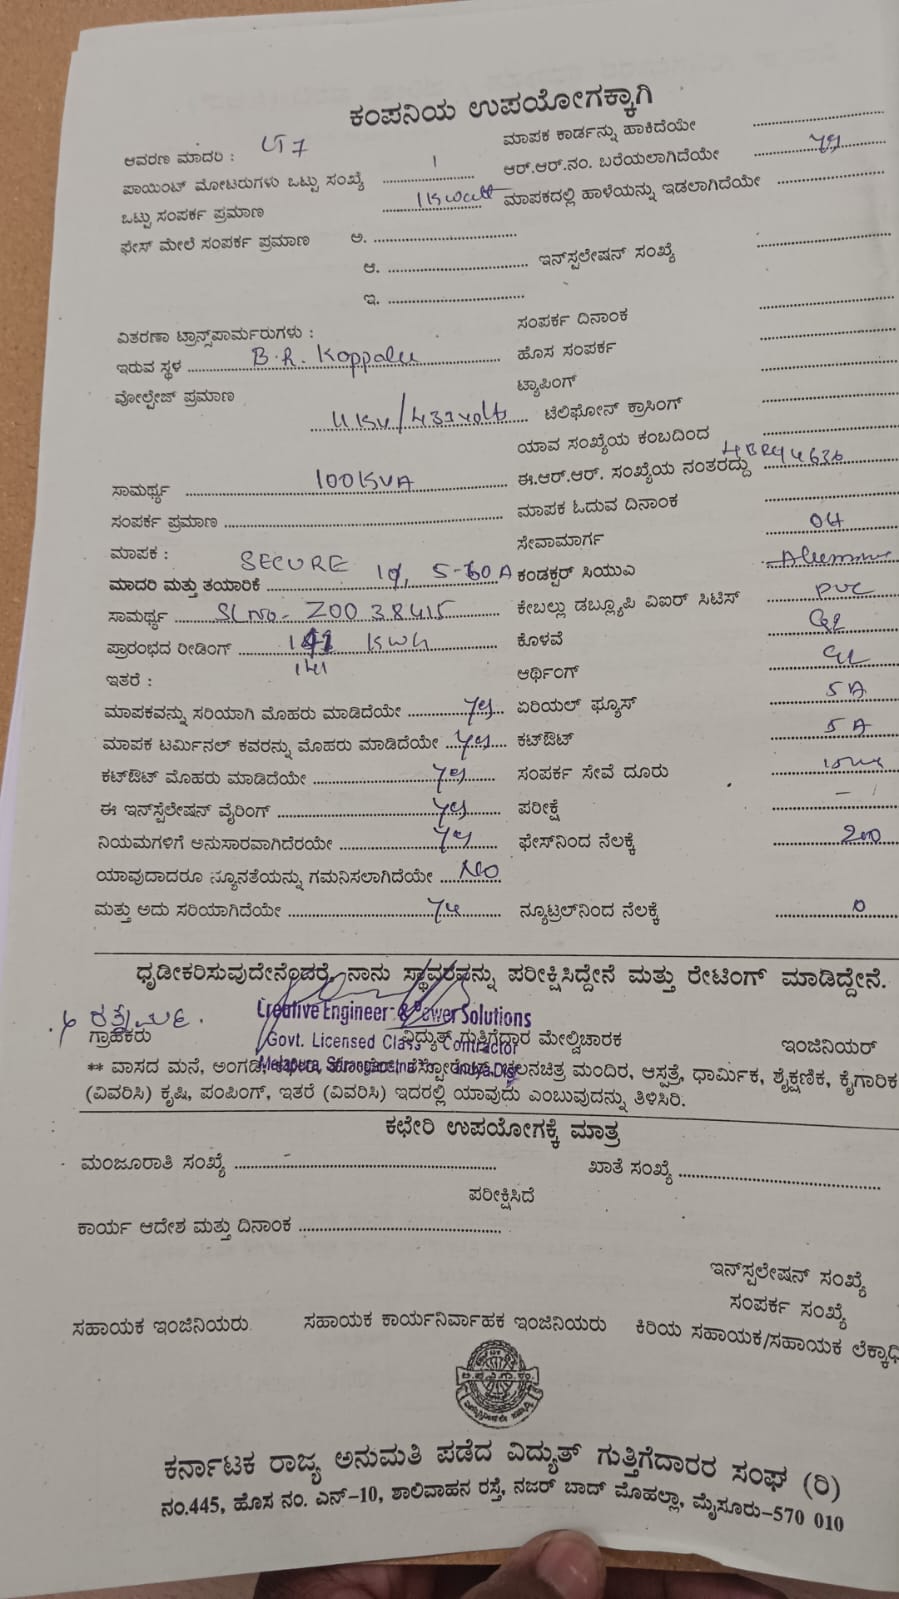 ಕಂಪನಿಯ ಉಪಯೋಗಕ್ಕಾಗಿ
ಆವರಣ ಮಾದರಿ : LT7 ಮಾಪಕ ಕಾರ್ಡನ್ನು ಹಾಕಿದೆಯೇ
ಪಾಯಿಂಟ್ ಮೋಟರುಗಳು ಒಟ್ಟು ಸಂಖ್ಯೆ 1 ಆರ್.ಆರ್.ನಂ. ಬರೆಯಲಾಗಿದೆಯೇ yes
ಒಟ್ಟು ಸಂಪರ್ಕ ಪ್ರಮಾಣ 1 Kwatt ಮಾಪಕದಲ್ಲಿ ಹಾಳೆಯನ್ನು ಇಡಲಾಗಿದೆಯೇ
ಫೇಸ್ ಮೇಲೆ ಸಂಪರ್ಕ ಪ್ರಮಾಣ ಅ.
ಆ. ಇನ್‌ಸ್ಪಲೇಷನ್ ಸಂಖ್ಯೆ
ಇ.
ವಿತರಣಾ ಟ್ರಾನ್ಸ್‌ಪಾರ್ಮರುಗಳು : ಸಂಪರ್ಕ ದಿನಾಂಕ
ಇರುವ ಸ್ಥಳ B.R. Koppalu ಹೊಸ ಸಂಪರ್ಕ
ವೋಲ್ಪೇಜ್ ಪ್ರಮಾಣ ಟ್ಯಾಪಿಂಗ್
11KV/433volts ಟೆಲಿಫೋನ್ ಕ್ರಾಸಿಂಗ್
ಯಾವ ಸಂಖ್ಯೆಯ ಕಂಬದಿಂದ
ಸಾಮರ್ಥ್ಯ 100KVA ಈ.ಆರ್.ಆರ್. ಸಂಖ್ಯೆಯ ನಂತರದ್ದು
ಸಂಪರ್ಕ ಪ್ರಮಾಣ ಮಾಪಕ ಓದುವ ದಿನಾಂಕ
ಮಾಪಕ : SECURE ಸೇವಾಮಾರ್ಗ OH
ಮಾದರಿ ಮತ್ತು ತಯಾರಿಕೆ 1φ, 5-60A ಕಂಡಕ್ಟರ್ ಸಿಯುಎ
ಸಾಮರ್ಥ್ಯ SLNo- Z0038415 ಕೇಬಲ್ಲು ಡಬ್ಲ್ಯೂಪಿ ವಿಐಆರ್ ಸಿಟಿಸ್ PVC
ಪ್ರಾರಂಭದ ರೀಡಿಂಗ್ KWh ಕೊಳವೆ GI
141
ಇತರೆ : ಆರ್ಥಿಂಗ್ GI
ಮಾಪಕವನ್ನು ಸರಿಯಾಗಿ ಮೊಹರು ಮಾಡಿದೆಯೇ yes ಏರಿಯಲ್ ಫ್ಯೂಸ್ 5A
ಮಾಪಕ ಟರ್ಮಿನಲ್ ಕವರನ್ನು ಮೊಹರು ಮಾಡಿದೆಯೇ yes ಕಟ್‌ಔಟ್ 5A
ಕಟ್‌ಔಟ್ ಮೊಹರು ಮಾಡಿದೆಯೇ yes ಸಂಪರ್ಕ ಸೇವೆ ದೂರು
ಈ ಇನ್‌ಸ್ಪೆಲೇಷನ್ ವೈರಿಂಗ್ yes ಪರೀಕ್ಷೆ
ನಿಯಮಗಳಿಗೆ ಅನುಸಾರವಾಗಿದೆರಯೇ yes ಫೇಸ್‌ನಿಂದ ನೆಲಕ್ಕೆ 200
ಯಾವುದಾದರೂ ನ್ಯೂನತೆಯನ್ನು ಗಮನಿಸಲಾಗಿದೆಯೇ NO
ಮತ್ತು ಅದು ಸರಿಯಾಗಿದೆಯೇ yes ನ್ಯೂಟ್ರಲ್‌ನಿಂದ ನೆಲಕ್ಕೆ 0
ಧೃಡೀಕರಿಸುವುದೇನೆಂದರೆ, ನಾನು ಸ್ಥಾವರವನ್ನು ಪರೀಕ್ಷಿಸಿದ್ದೇನೆ ಮತ್ತು ರೇಟಿಂಗ್ ಮಾಡಿದ್ದೇನೆ.
Creative Engineer & Power Solutions
Govt. Licensed Class Contractor
ಗ್ರಾಹಕರು ವಿದ್ಯುತ್ ಗುತ್ತಿಗೆದಾರ ಮೇಲ್ವಿಚಾರಕ ಇಂಜಿನಿಯರ್
** ವಾಸದ ಮನೆ, ಅಂಗಡಿ, ಚಲನಚಿತ್ರ ಮಂದಿರ, ಆಸ್ಪತ್ರೆ, ಧಾರ್ಮಿಕ, ಶೈಕ್ಷಣಿಕ, ಕೈಗಾರಿಕ
(ವಿವರಿಸಿ) ಕೃಷಿ, ಪಂಪಿಂಗ್, ಇತರೆ (ವಿವರಿಸಿ) ಇದರಲ್ಲಿ ಯಾವುದು ಎಂಬುವುದನ್ನು ತಿಳಿಸಿರಿ.
ಕಛೇರಿ ಉಪಯೋಗಕ್ಕೆ ಮಾತ್ರ
ಮಂಜೂರಾತಿ ಸಂಖ್ಯೆ ಖಾತೆ ಸಂಖ್ಯೆ
ಪರೀಕ್ಷಿಸಿದೆ
ಕಾರ್ಯ ಆದೇಶ ಮತ್ತು ದಿನಾಂಕ
ಇನ್‌ಸ್ಪಲೇಷನ್ ಸಂಖ್ಯೆ
ಸಂಪರ್ಕ ಸಂಖ್ಯೆ
ಸಹಾಯಕ ಇಂಜಿನಿಯರು ಸಹಾಯಕ ಕಾರ್ಯನಿರ್ವಾಹಕ ಇಂಜಿನಿಯರು ಕಿರಿಯ ಸಹಾಯಕ/ಸಹಾಯಕ ಲೆಕ್ಕಾಧಿ
ಕರ್ನಾಟಕ ರಾಜ್ಯ ಅನುಮತಿ ಪಡೆದ ವಿದ್ಯುತ್ ಗುತ್ತಿಗೆದಾರರ ಸಂಘ (ರಿ)
ನಂ.445, ಹೊಸ ನಂ. ಎನ್-10, ಶಾಲಿವಾಹನ ರಸ್ತೆ, ನಜರ್ ಬಾದ್ ಮೊಹಲ್ಲಾ, ಮೈಸೂರು-570 010